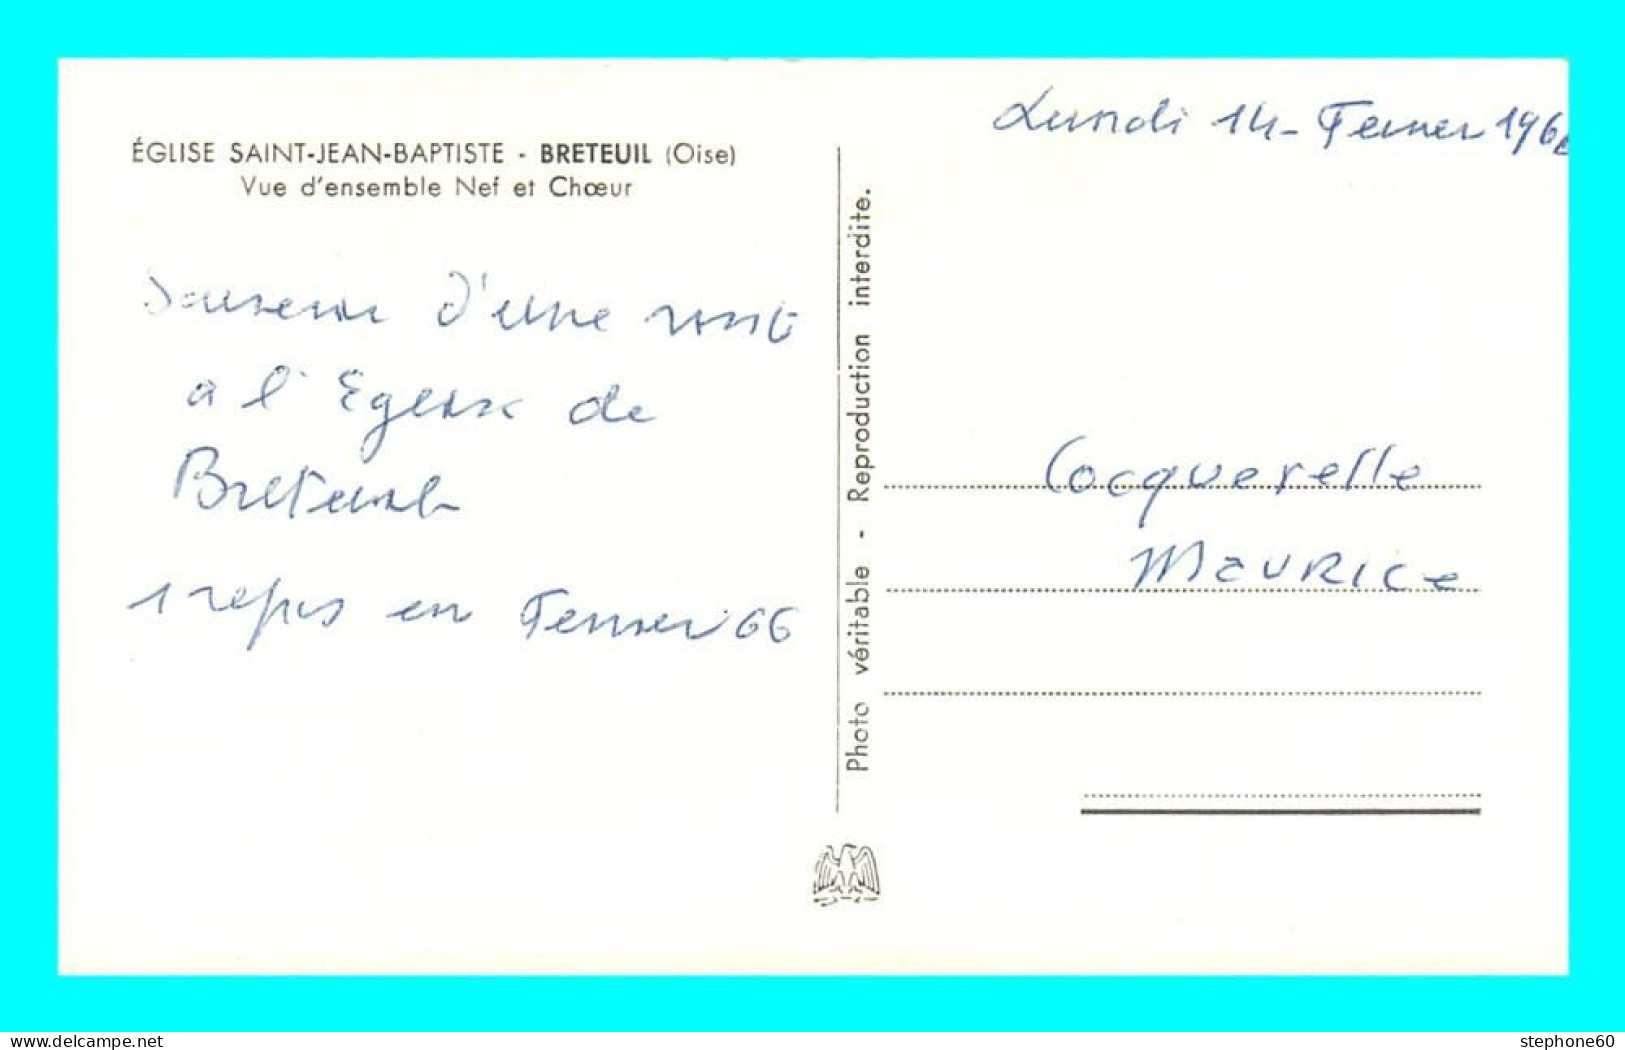 ÉGLISE SAINT-JEAN-BAPTISTE - BRETEUIL (Oise)
Vue d'ensemble Nef et Chœur
Souvenir d'une visite
a l'Eglise de
Breteuil
1 repas en Fevrier 66
Photo véritable - Reproduction interdite.
Lundi 14 - Fevrier 1966
Cocquerelle
MAURICE
delcampe.net
stephone60